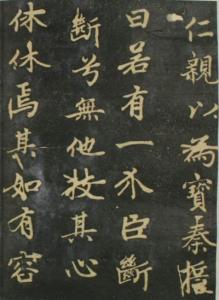 仁親以為寶秦誓
曰若有一介臣斷
斷兮無他技其心
休休焉其如有容